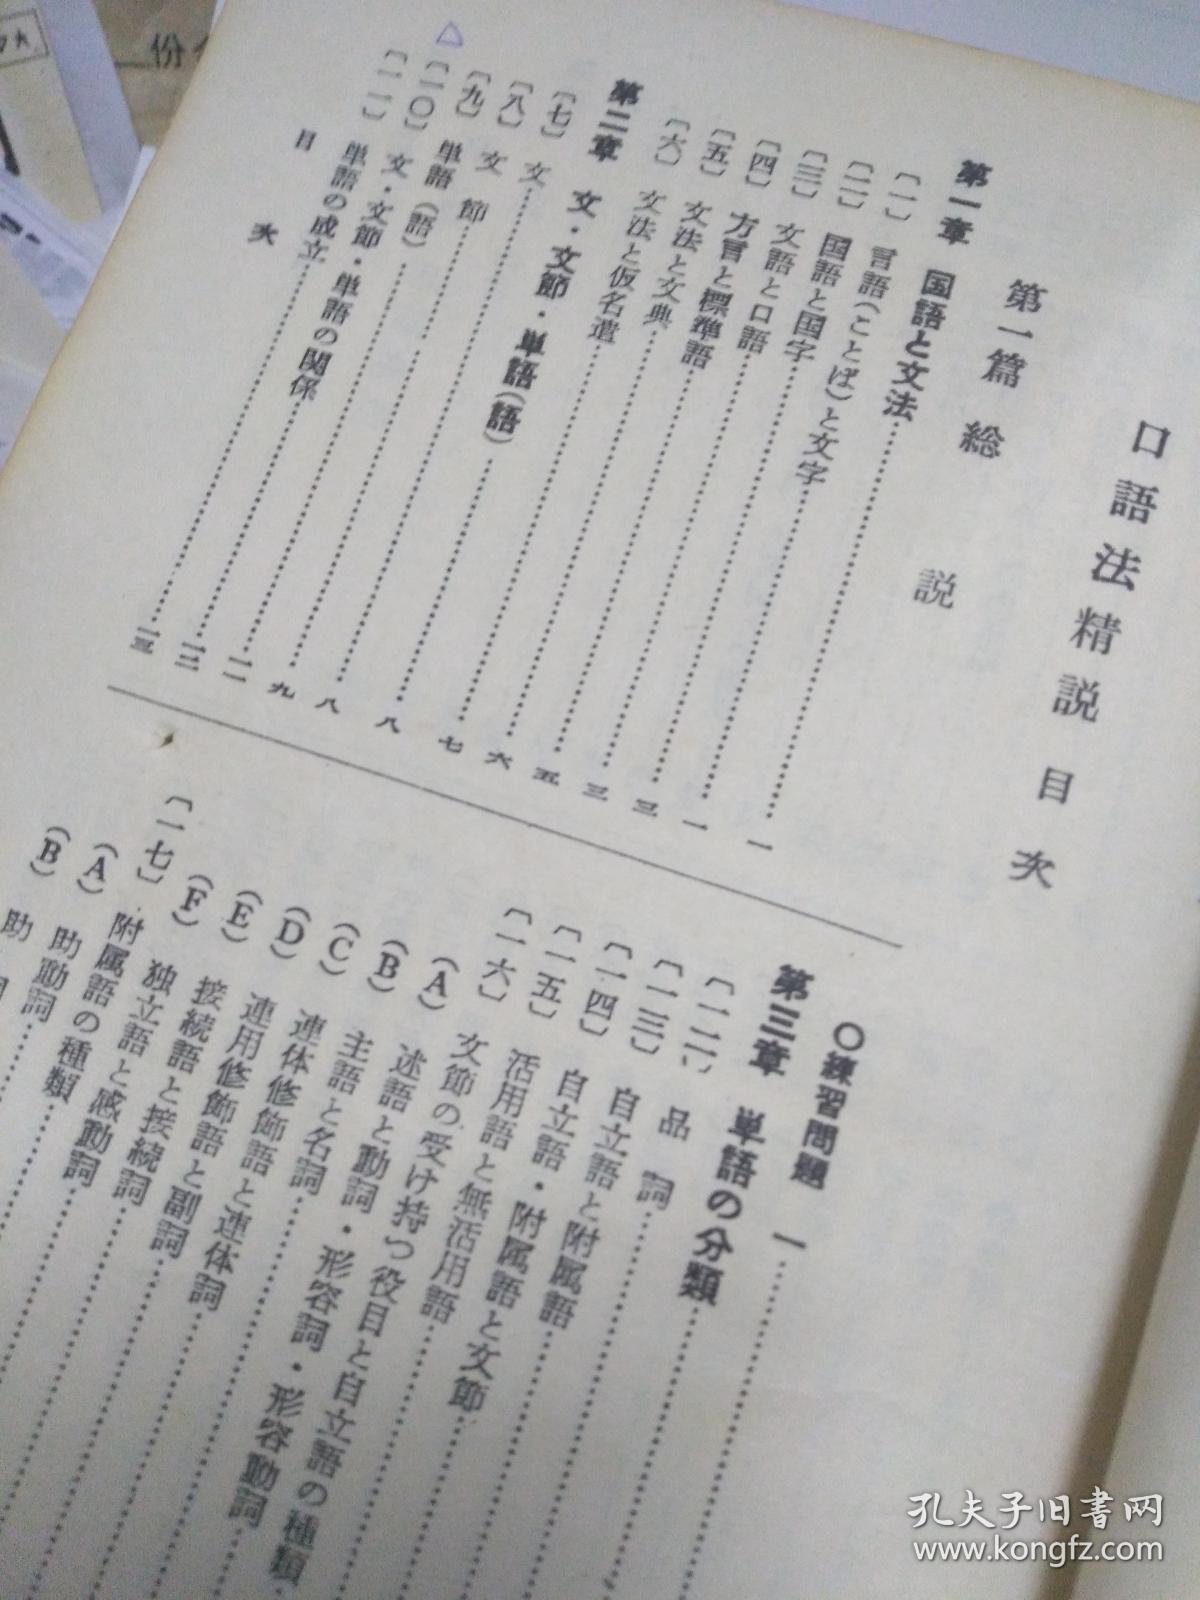 口語法精説 目次
第一篇 総説
第一章 国語と文法……一
〔一〕 言語(ことば)と文字……一
〔二〕 国語と国字……三
〔三〕 文語と口語……三
〔四〕 方言と標準語……五
〔五〕 文法と文典……六
〔六〕 文法と仮名遣……七
第二章 文・文節・単語(語)……八
〔七〕 文……八
〔八〕 文節……九
〔九〕 単語(語)……一一
〔一〇〕 文・文節・単語の関係……一二
〔一一〕 単語の成立……一三
目次
〇練習問題 一
第三章 単語の分類
〔一二〕 品詞
〔一三〕 自立語と附属語
〔一四〕 自立語・附属語と文節
〔一五〕 活用語と無活用語
〔一六〕 文節の受け持つ役目と自立語の種類
(A) 述語と動詞・形容詞・形容動詞
(B) 主語と名詞
(C) 連体修飾語と連体詞
(D) 連用修飾語と副詞
(E) 接続語と接続詞
(F) 独立語と感動詞
〔一七〕 附属語の種類
(A) 助動詞
(B) 助詞
孔夫子旧书网
www.kongfz.com